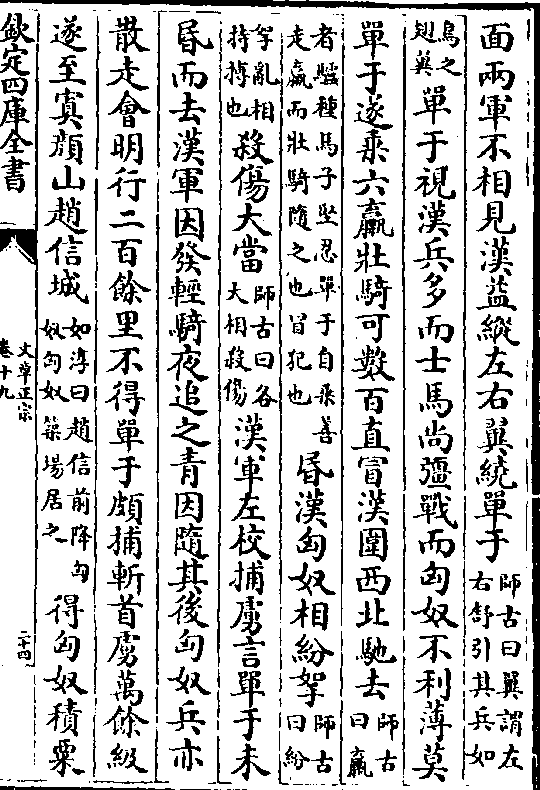 面兩軍不相見漢益縱左右翼繞單于師古曰翼謂左右舒引其兵如
鳥之翅翼單于視漢兵多而士馬尚彊戰而匈奴不利薄莫
單于遂乘六臝壯騎可數百直冒漢圍西北馳去師古曰臝
者驢種馬子堅忍單于自乘善走臝而壯騎隨之也冒犯也昬漢匈奴相紛拏師古曰紛
拏亂相持搏也殺傷大當師古曰各大相殺傷漢軍左校捕虜言單于未
昬而去漢軍因發輕騎夜追之青因隨其後匈奴兵亦
散走會明行二百餘里不得單于頗捕斬首虜萬餘級
遂至窴顔山趙信城如淳曰趙信前降匈奴匈奴築塲居之得匈奴積粟
欽定四庫全書
文章正宗
卷十九
二十四